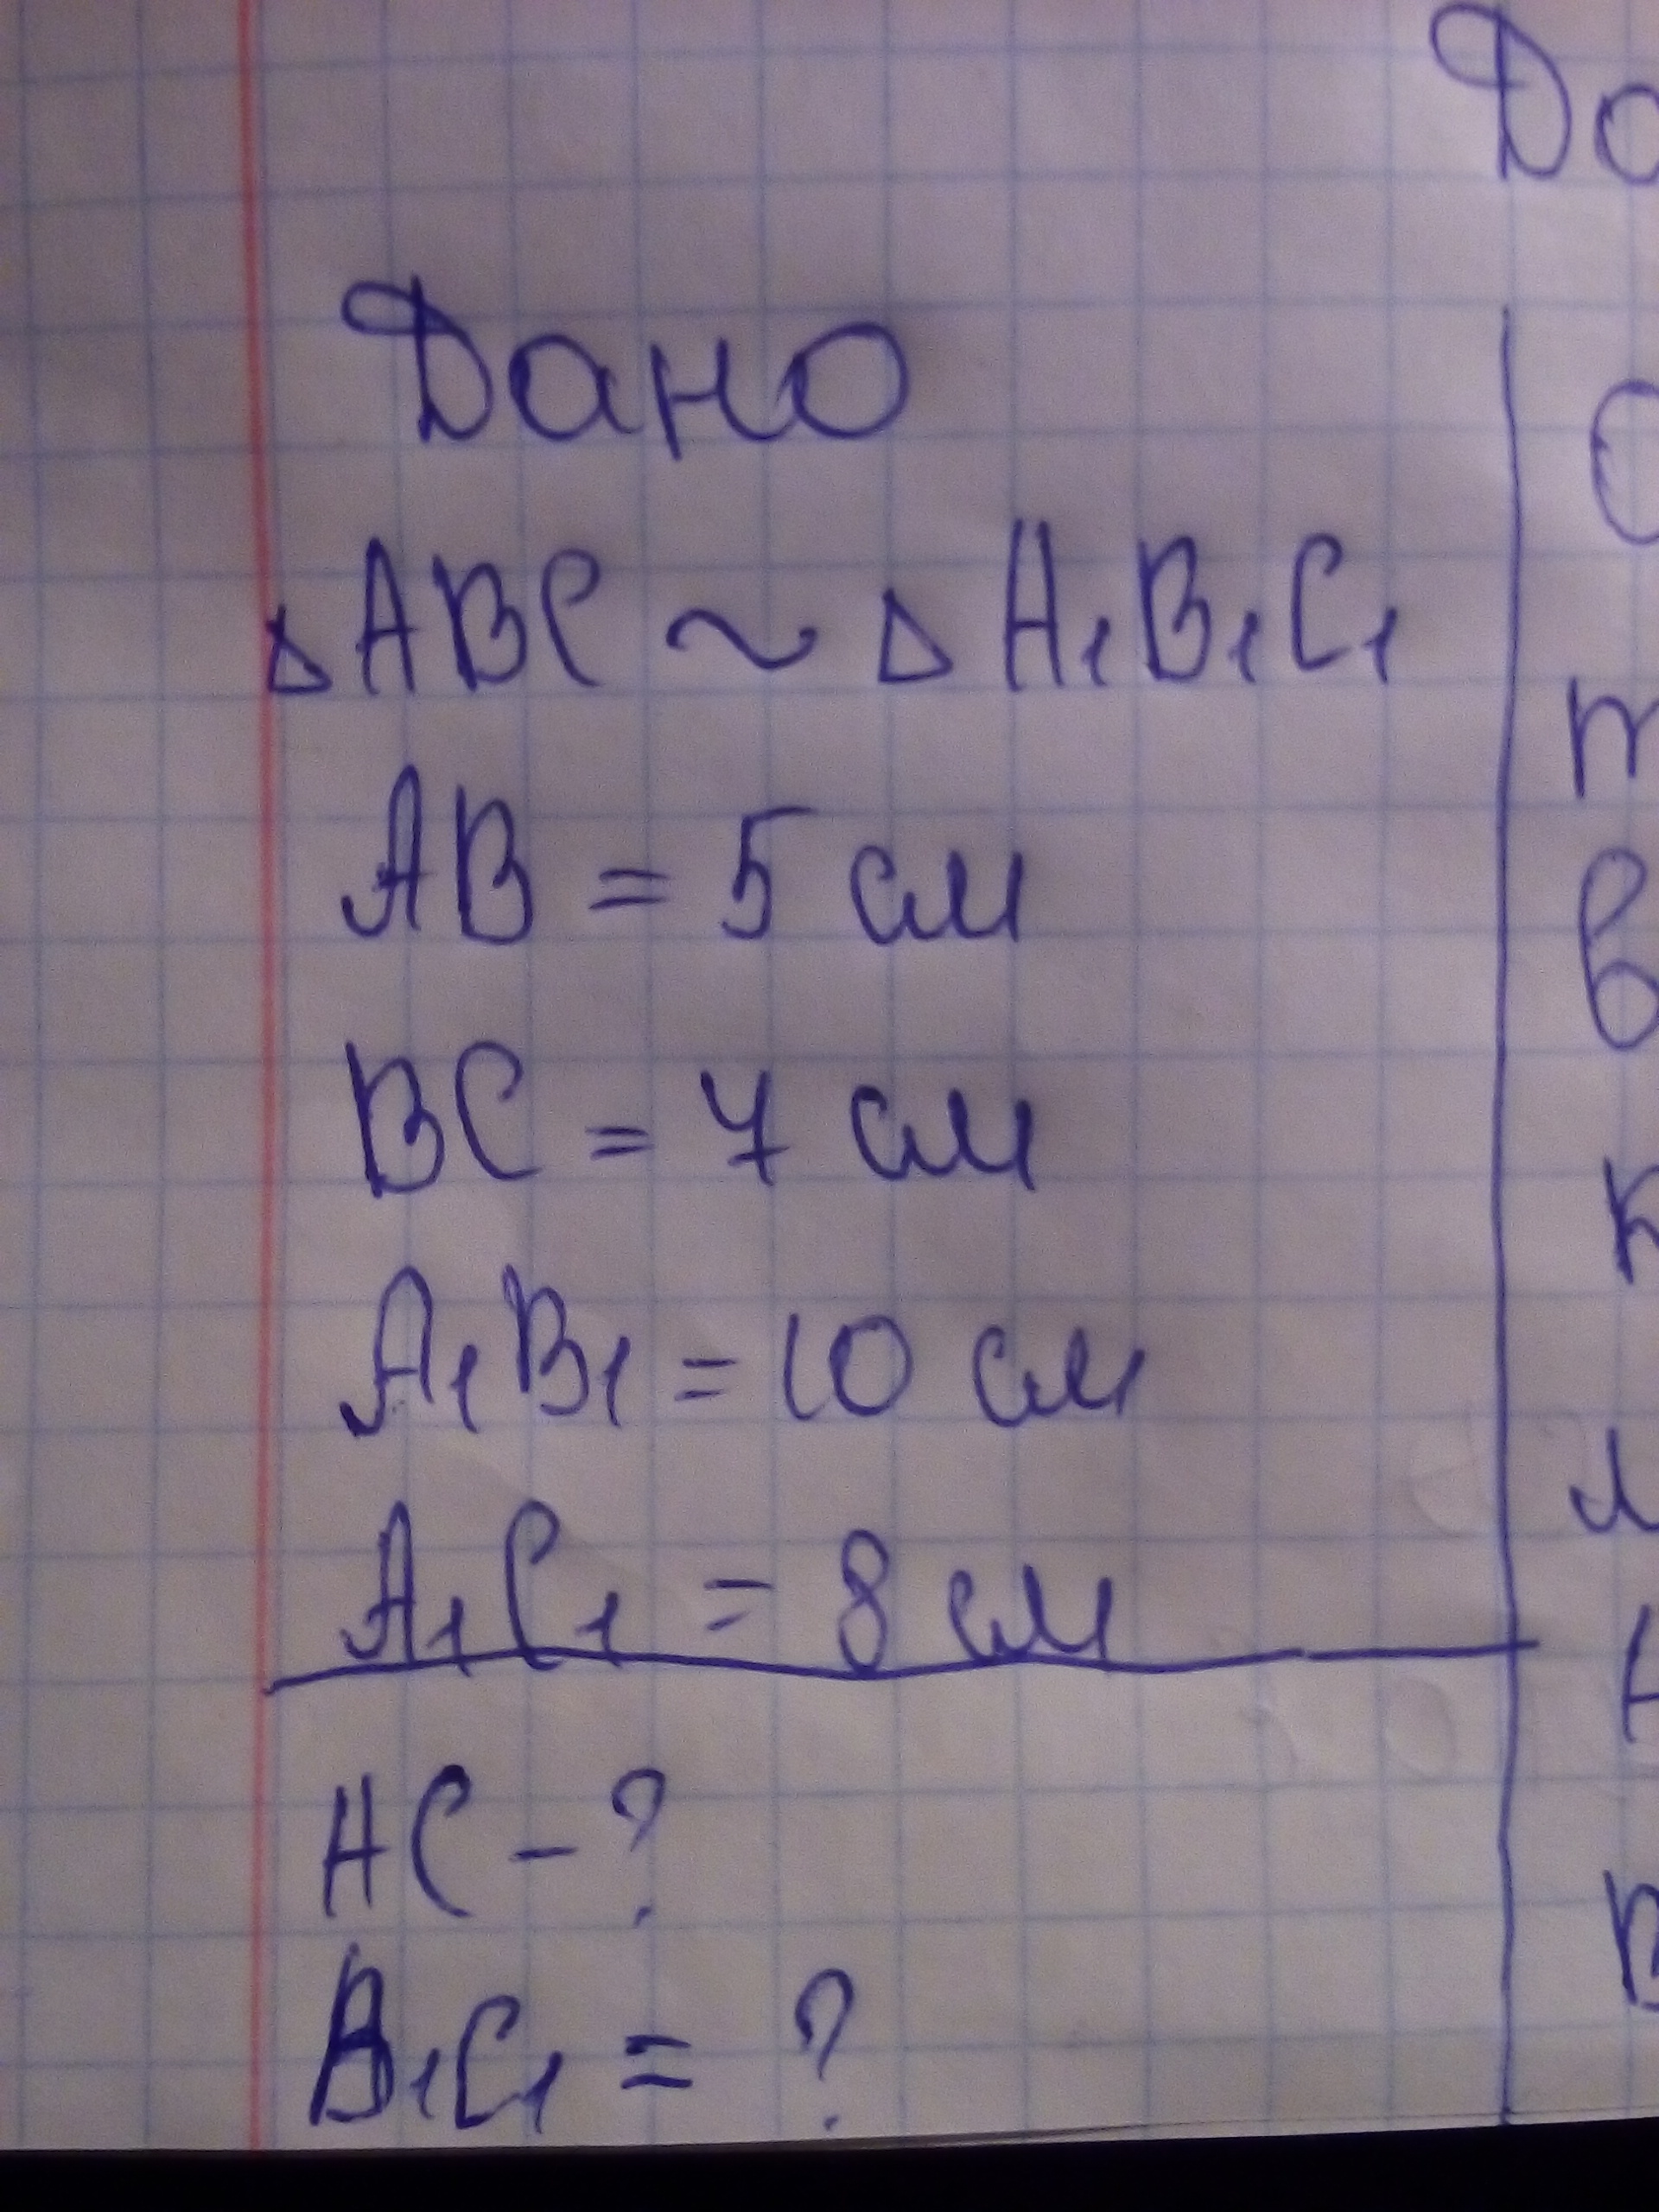 Дано
△ABC ~ △A₁B₁C₁
AB = 5 см
BC = 7 см
A₁B₁ = 10 см
A₁C₁ = 8 см
AC - ?
B₁C₁ = ?